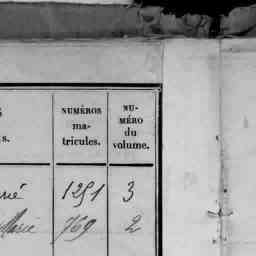 S
NUMÉROS
ma-
tricules.
NU-
MÉRO
du
volume.
s.
rié 1251 3
Marie 769 2